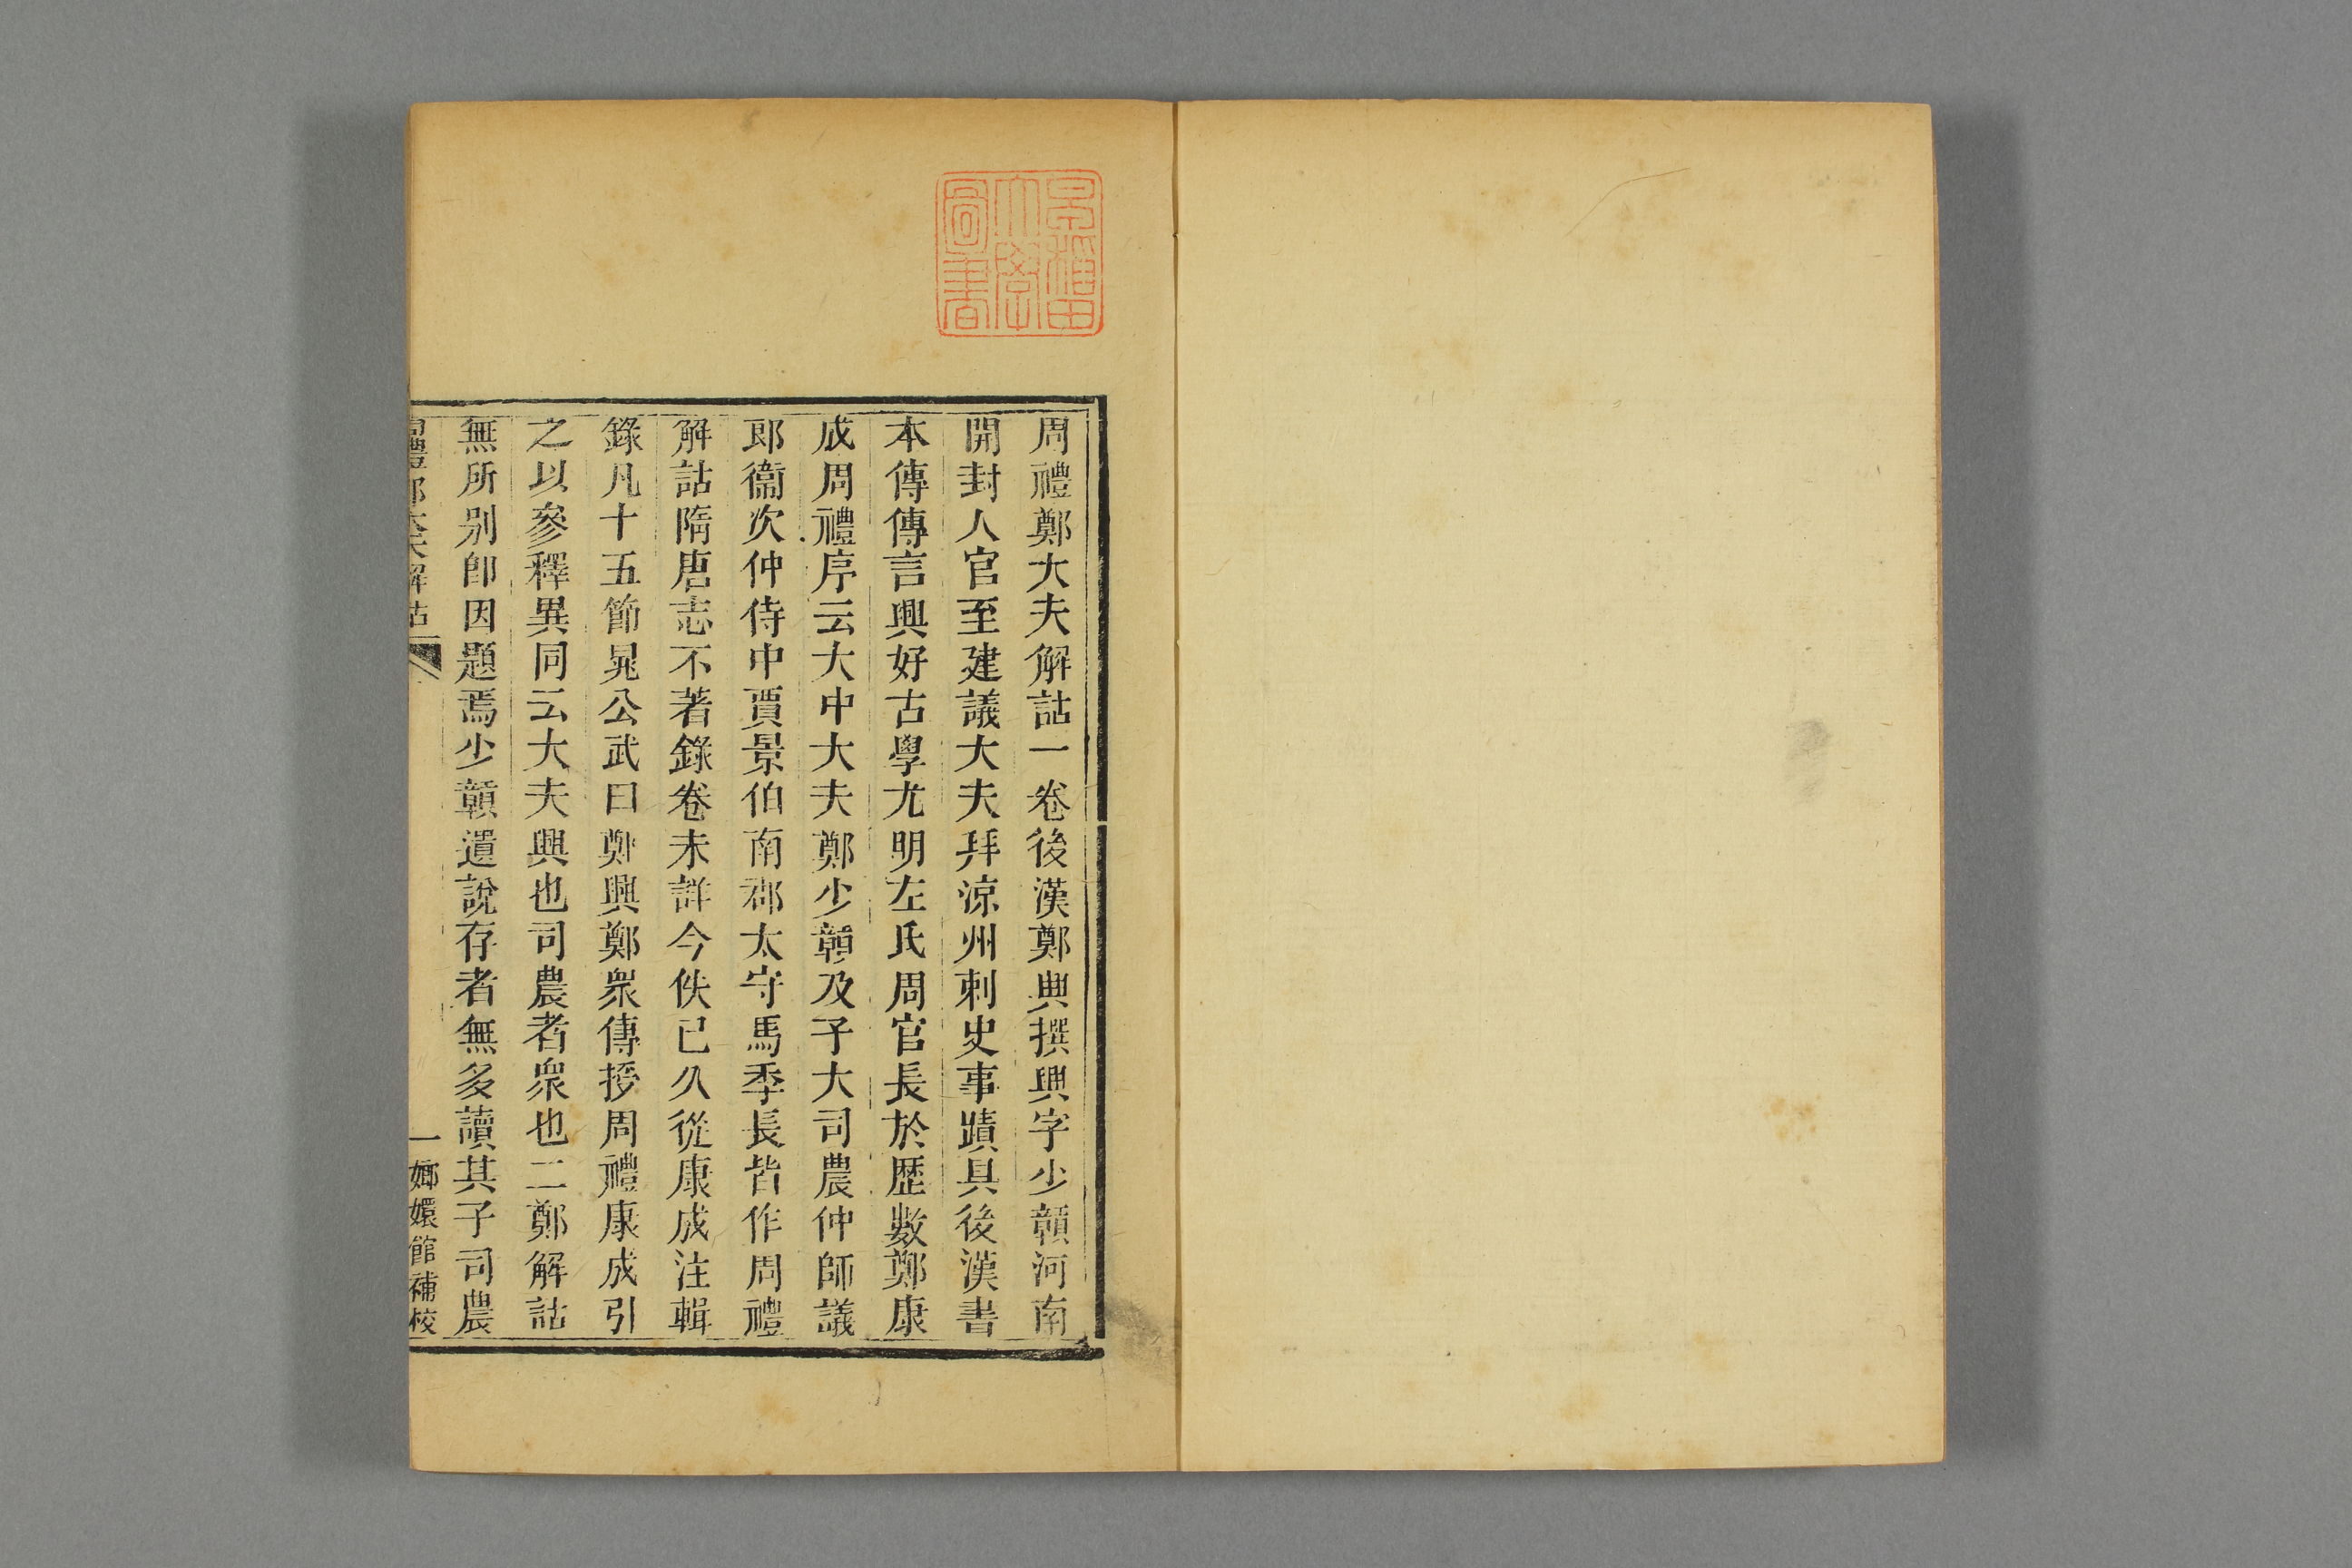 早稲田
大學
圖書
周禮鄭大夫解詁一卷後漢鄭興撰興字少贛河南
開封人官至建議大夫拜涼州刺史事蹟具後漢書
本傳傳言興好古學尤明左氏周官長於歷數鄭康
成周禮序云大中大夫鄭少贛及子大司農仲師議
郎衞次仲侍中賈景伯南郡太守馬季長皆作周禮
解詁隋唐志不著錄卷未詳今佚已久從康成注輯
錄凡十五節晁公武曰鄭興鄭衆傳授周禮康成引
之以參釋異同云大夫興也司農者衆也二鄭解詁
無所別卽因題焉少贛遺說存者無多讀其子司農
周禮鄭大夫解詁
一
嫏嬛館補校